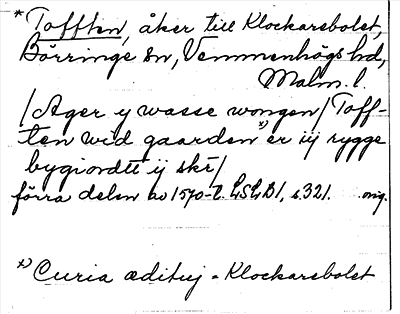 * Tofften, åker till Klockarebolet,
Börringe sn, Vemmenhögs hd,
Malm. l.
/Ager y wasse wongen/Toff-
ten wid gaarden x) er iij rygge
bygiordtt ij skr/
förra delen av 1570-t. LSLB1, s. 321. orig.
x) Curia ædituj = Klockarebolet